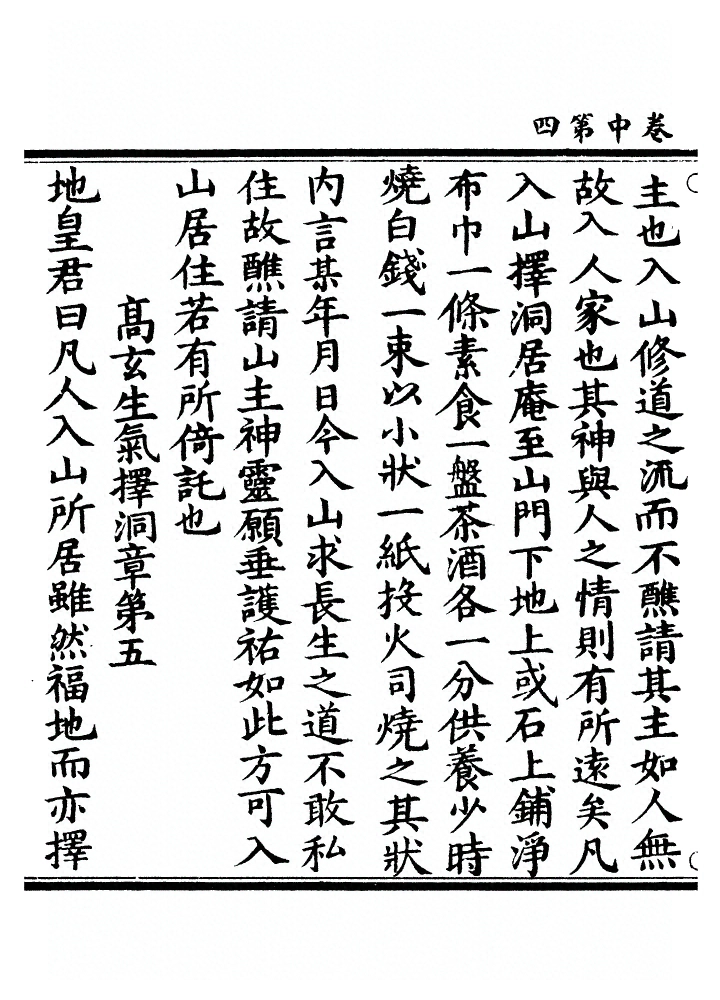 卷中第四
主也入山修道之流而不醮請其主如人無
故入人家也其神與人之情則有所遠矣凡
入山擇洞居庵至山門下地上或石上鋪淨
布巾一條素食一盤茶酒各一分供養少時
燒白錢一束以小狀一紙投火司燒之其狀
内言某年月日今入山求長生之道不敢私
住故醮請山主神靈願垂護祐如此方可入
山居住若有所倚託也
髙玄生氣擇洞章第五
地皇君曰凡人入山所居雖然福地而亦擇